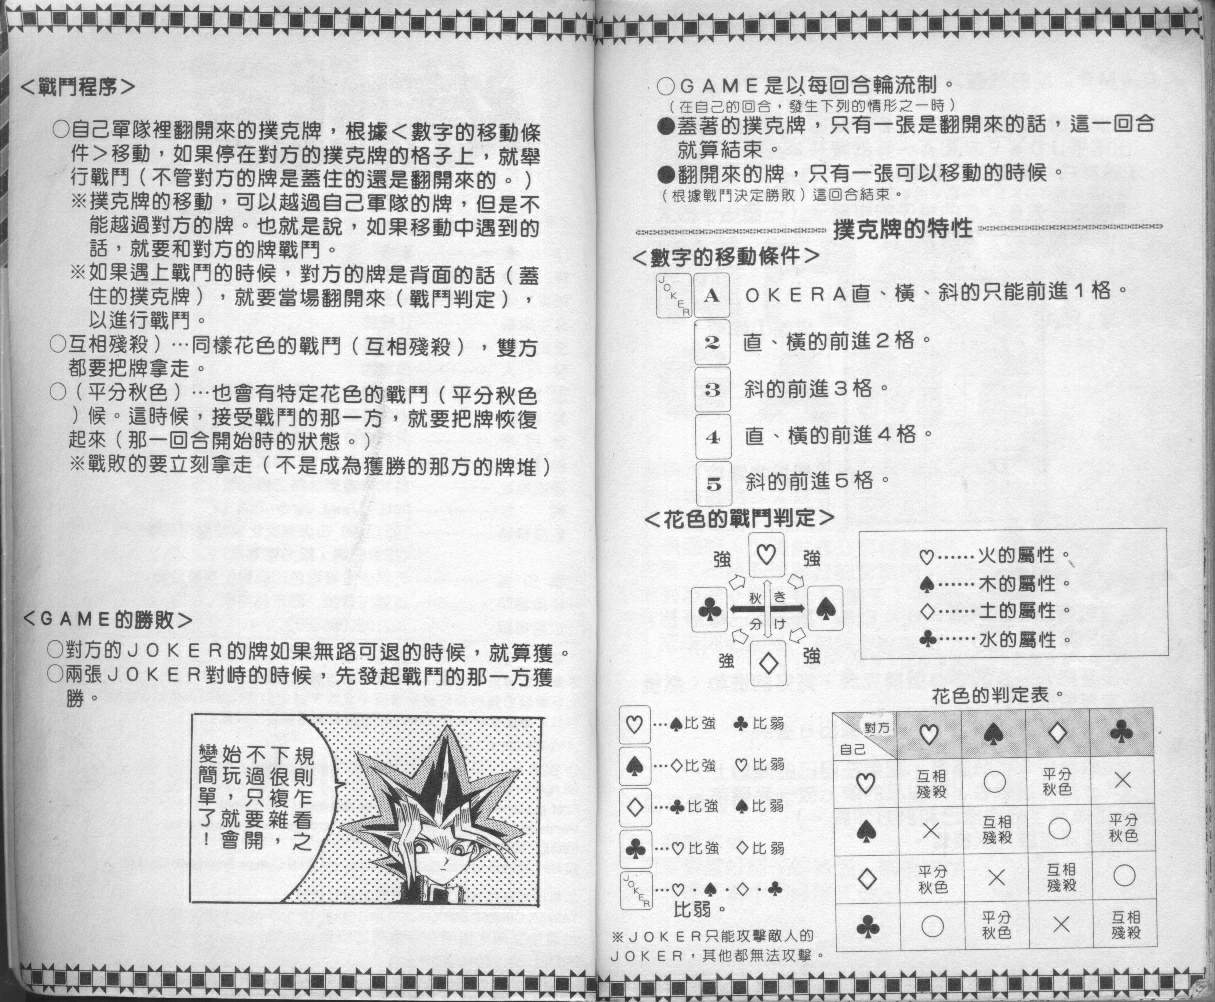 ＜戰鬥程序＞
○自己軍隊裡翻開來的撲克牌，根據＜數字的移動條
件＞移動，如果停在對方的撲克牌的格子上，就舉
行戰鬥（不管對方的牌是蓋住的還是翻開來的。）
※撲克牌的移動，可以越過自己軍隊的牌，但是不
能越過對方的牌。也就是說，如果移動中遇到的
話，就要和對方的牌戰鬥。
※如果遇上戰鬥的時候，對方的牌是背面的話（蓋
住的撲克牌），就要當場翻開來（戰鬥判定），
以進行戰鬥。
○互相殘殺）…同樣花色的戰鬥（互相殘殺），雙方
都要把牌拿走。
○（平分秋色）…也會有特定花色的戰鬥（平分秋色
）候。這時候，接受戰鬥的那一方，就要把牌恢復
起來（那一回合開始時的狀態。）
※戰敗的要立刻拿走（不是成為獲勝的那方的牌堆）
＜GAME的勝敗＞
○對方的JOKER的牌如果無路可退的時候，就算獲。
○兩張JOKER對峙的時候，先發起戰鬥的那一方獲
勝。
規則乍看之
下很複雜，
不過只要開
始玩，就會
變簡單了！
○GAME是以每回合輪流制。
（在自己的回合，發生下列的情形之一時）
●蓋著的撲克牌，只有一張是翻開來的話，這一回合
就算結束。
●翻開來的牌，只有一張可以移動的時候。
（根據戰鬥決定勝敗）這回合結束。
撲克牌的特性
＜數字的移動條件＞
JOKER A OKERA直、橫、斜的只能前進1格。
2 直、橫的前進2格。
3 斜的前進3格。
4 直、橫的前進4格。
5 斜的前進5格。
＜花色的戰鬥判定＞
強 ♡ 強
♣ 秋 き ♠
分 け
強 ♢ 強
♡……火的屬性。
♠……木的屬性。
♢……土的屬性。
♣……水的屬性。
♡…♠比強 ♣比弱
♠…♢比強 ♡比弱
♢…♣比強 ♠比弱
♣…♡比強 ♢比弱
JOKER…♡・♠・♢・♣
比弱。
※JOKER只能攻擊敵人的
JOKER，其他都無法攻擊。
花色的判定表。
對方 自己 ♡ ♠ ♢ ♣
♡ 互相殘殺 ○ 平分秋色 ×
♠ × 互相殘殺 ○ 平分秋色
♢ 平分秋色 × 互相殘殺 ○
♣ ○ 平分秋色 × 互相殘殺